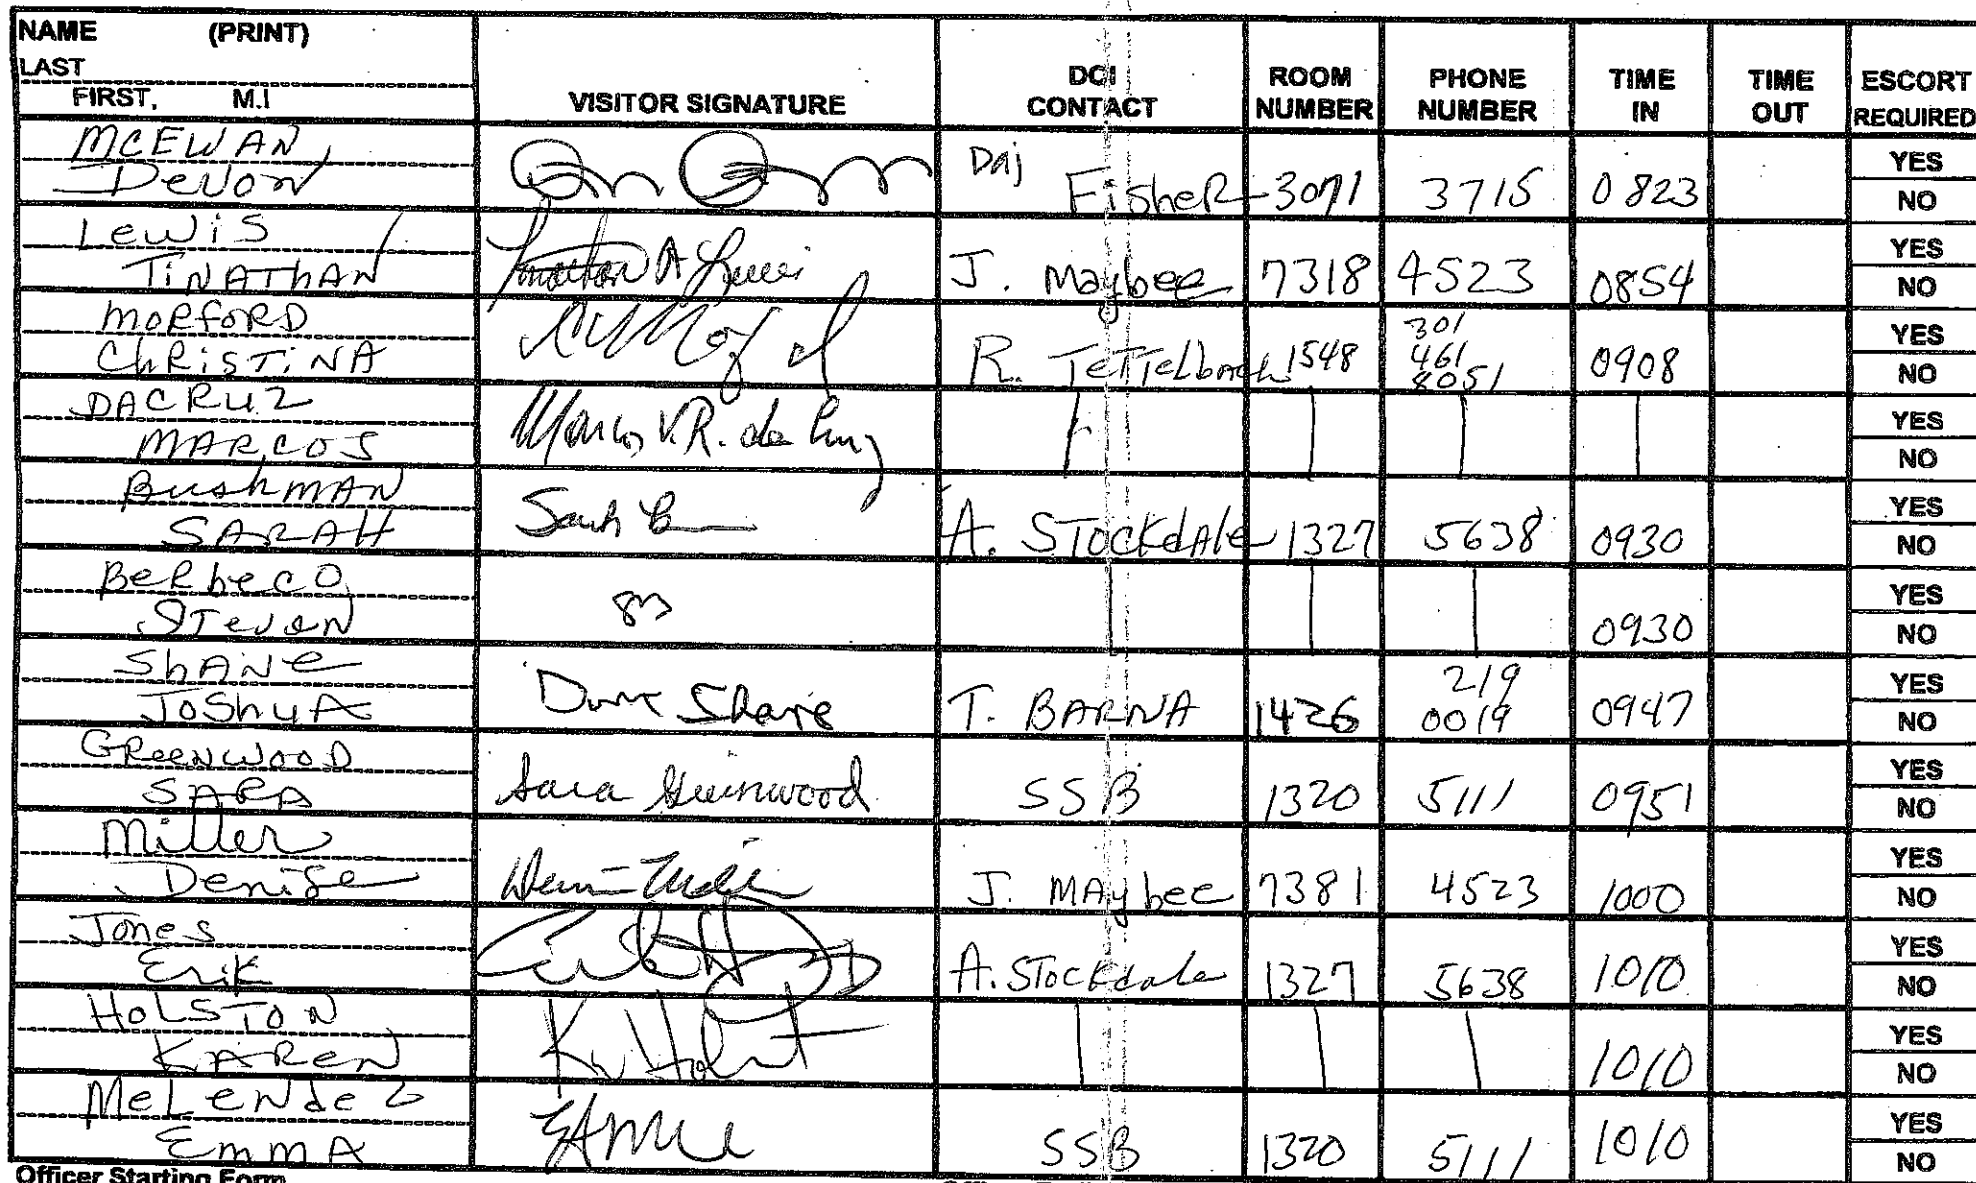 NAME (PRINT)
LAST
FIRST, M.I
VISITOR SIGNATURE
DOI
CONTACT
ROOM
NUMBER
PHONE
NUMBER
TIME
IN
TIME
OUT
ESCORT
REQUIRED
MCEWAN,
Devon
Daj
Fisher 3071 3715 0823
YES
NO
Lewis
TINATHAN
Jonathan A Lewis
J. Maybee 7318 4523 0854
YES
NO
MORFORD
ChRISTINA
R. TeTTelbach 1548
301
461
8051
0908
YES
NO
DACRUZ
MARCOS
Marcos V.R. da Cruz
YES
NO
BushMAN
SARAH
Sarah
A. STockdAle 1327 5638 0930
YES
NO
Berbeco
STeven
0930
YES
NO
ShANe
JoShuA
Shane
T. BARNA 1426
219
0019
0947
YES
NO
GReenwooD
SARA
Sara Greenwood
SSB 1320 5111 0951
YES
NO
Miller
Denise
J. MAybee 7381 4523 1000
YES
NO
Jones
Erik
A. STockdale 1327 5638 1010
YES
NO
HoLSTON
KAReN
1010
YES
NO
MeLeNdez
EmmA
SSB 1320 5111 1010
YES
NO
Officer Starting Form